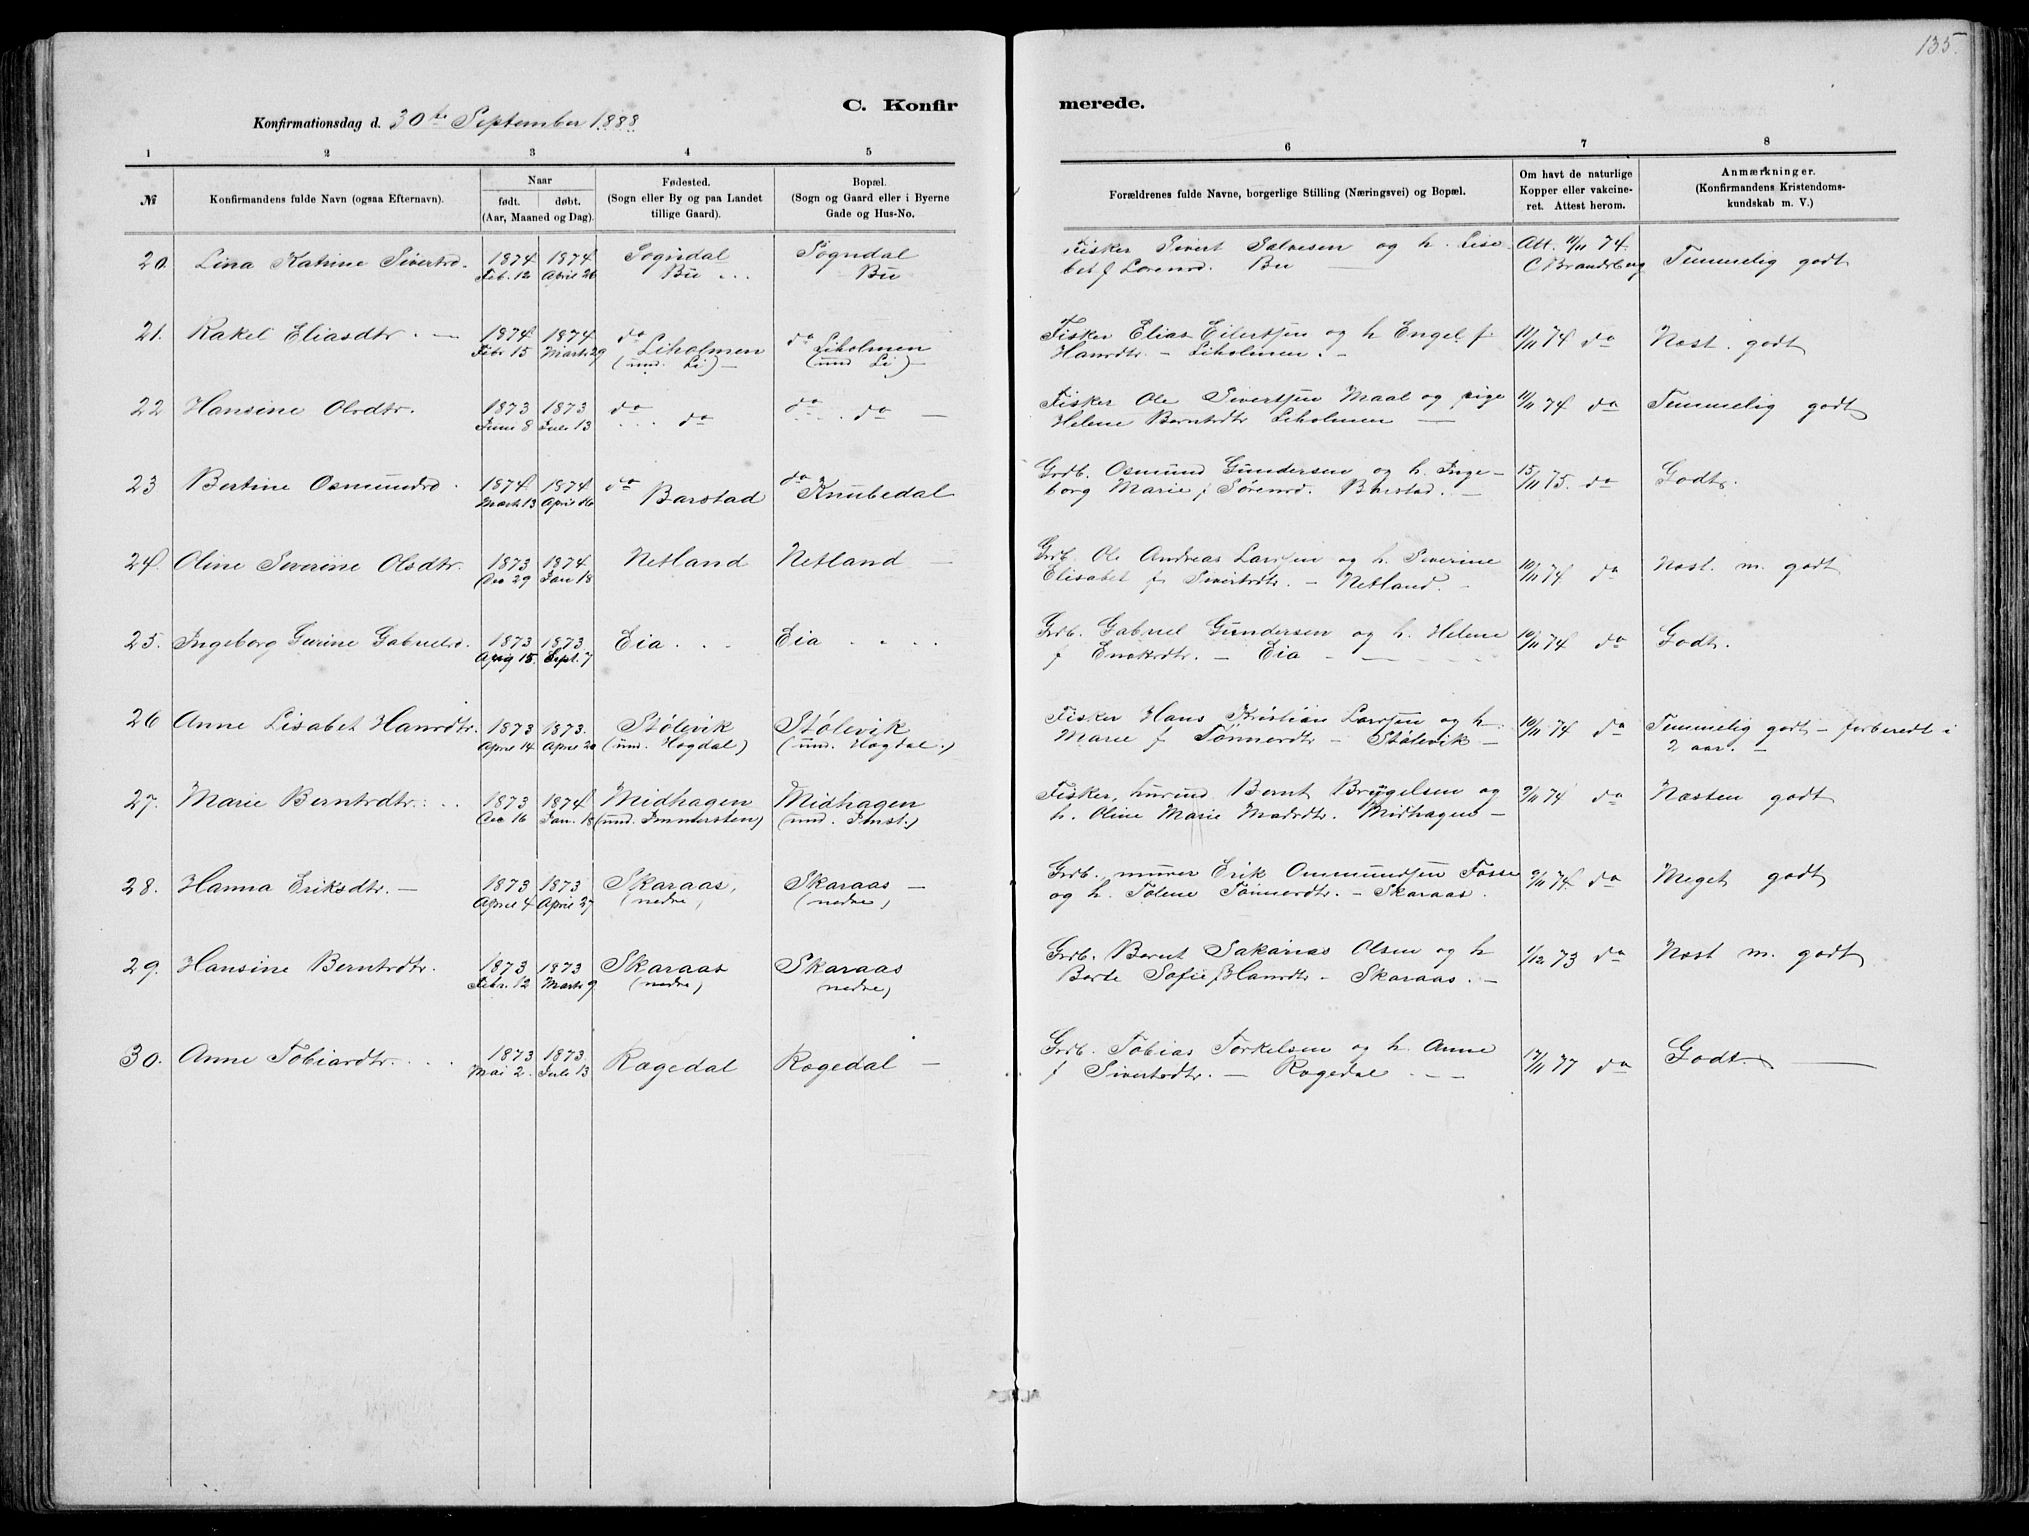 135.
C. Konfirmerede.
Konfirmationsdag d. 30te September 1888
1 2 3 4 5 6 7 8
№ Konfirmandens fulde Navn (ogsaa Efternavn). Naar født. døbt. (Aar, Maaned og Dag). Fødested. (Sogn eller By og paa Landet tillige Gaard). Bopæl. (Sogn og Gaard eller i Byerne Gade og Hus-No. Forældrenes fulde Navne, borgerlige Stilling (Næringsvei) og Bopæl. Om havt de naturlige Kopper eller vakcineret. Attest herom. Anmærkninger. (Konfirmandens Kristendomskundskab m. V.)
20. Lina Katrine Sivertsd. 1874 1874 Sogndal Sogndal Fisker Sivert Salvesen og h. Lise- Att. 11/11 74. Temmelig godt
Feb. 12 April 26 Bu Bu bet f Lorensd. Bu — C Brandsberg
21. Rakel Eliasdtr. — 1874 1874 do Liholmen do Liholmen Fisker Elias Eilertsen og h Engel f 11/11 74 do Næst. godt
Febr 15 Marts 29 (und. Li) — (und Li) — Hansdtr. — Liholmen. —
22 Hansine Olsdtr. 1873 1873 do do do do — Fisker Ole Sivertsen Maal og pige 11/11 74 do Temmelig godt
Juni 8 Juli 13 Helene Berntsdtr Liholmen —
23 Bertine Osmundsd. 1874 1874 do Barstad do Knubedal Grdb. Osmund Gundersen og h. Inge- 15/11 75. do Godt.
Marts 13 April 16 borg Marie f Sørensd. Barstad. —
24. Oline Severine Olsdtr. 1873 1874 Netland Netland — Grdb. Ole Andreas Larssen og h. Siverine 10/11 74 do Næst. m. godt
Dec 29 Jan 18 Elisabet f Sivertsdtr. — Netland. —
25. Ingeborg Gurine Gabrielsd. 1873 1873 Eia Eia Grdb. Gabriel Gundersen og h. Helene 10/11 74 do Godt.
Aug 15. Sept. 7 f Enoksdtr. — Eia —
26 Anne Lisabet Hansdtr. 1873 1873. Stølevik Stølevik Fisker Hans Kristian Larssen og h 10/11 74 do Temmelig godt — forberedt i
April 14 April 20 (und. Hogdal) (und. Hogdal.) Marie f Tønnesdtr — Stølevik — 2 aar. —
27. Marie Berntsdtr. 1873 1874 Midhagen Midhagen Fisker, husmd Bernt Brygelsen og 9/11 74 do Næsten godt
Dec 16 Jan. 18 (und. Immersten) (und. Imst.) h. Oline Marie Madsdtr. Midhagen —
28. Hanna Eriksdtr. — 1873 1873 Skaraas, Skaraas — Grdb. murer Erik Ommundsen Fosse 9/11 74 do Meget godt
April 4 April 27 (nedre) (nedre) og h. Tolene Tønnesdtr. — Skaraas.
29. Hansine Berntsdtr. 1873 1873 Skaraas Skaraas Grdb. Bernt Sakarias Olsen og h 1/12 73 do Næst m. godt
Febr. 12 Marts 9 (nedre) nedre) Berte Sofie f Hansdtr — Skaraas. —
30. Anne Tobiasdtr. 1873 1873. Rægedal Rægedal — Grdb. Tobias Torkelsen og h. Anne 17/11 77 do Godt. —
Mai 2. Juli 13 f Sivertsdtr. — Rægedal —